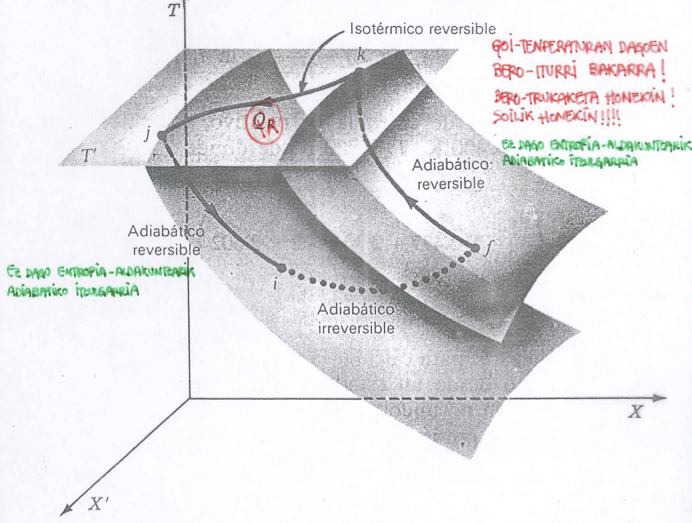 T
Isotérmico reversible
k
GOI-TENPERATURAN DAGOEN
BERO-ITURRI BAKARRA!
BERO-TRUKAKETA HONEKIN!
SOILIK HONEKIN!!!!
j
QR
T'
EZ DAGO ENTROPIA-ALDAKUNTZARIK
ADIABATIKO ITZULGARRIA
Adiabático
reversible
Adiabático
reversible
f
EZ DAGO ENTROPIA-ALDAKUNTZARIK
ADIABATIKO ITZULGARRIA
i
Adiabático
irreversible
X
X'